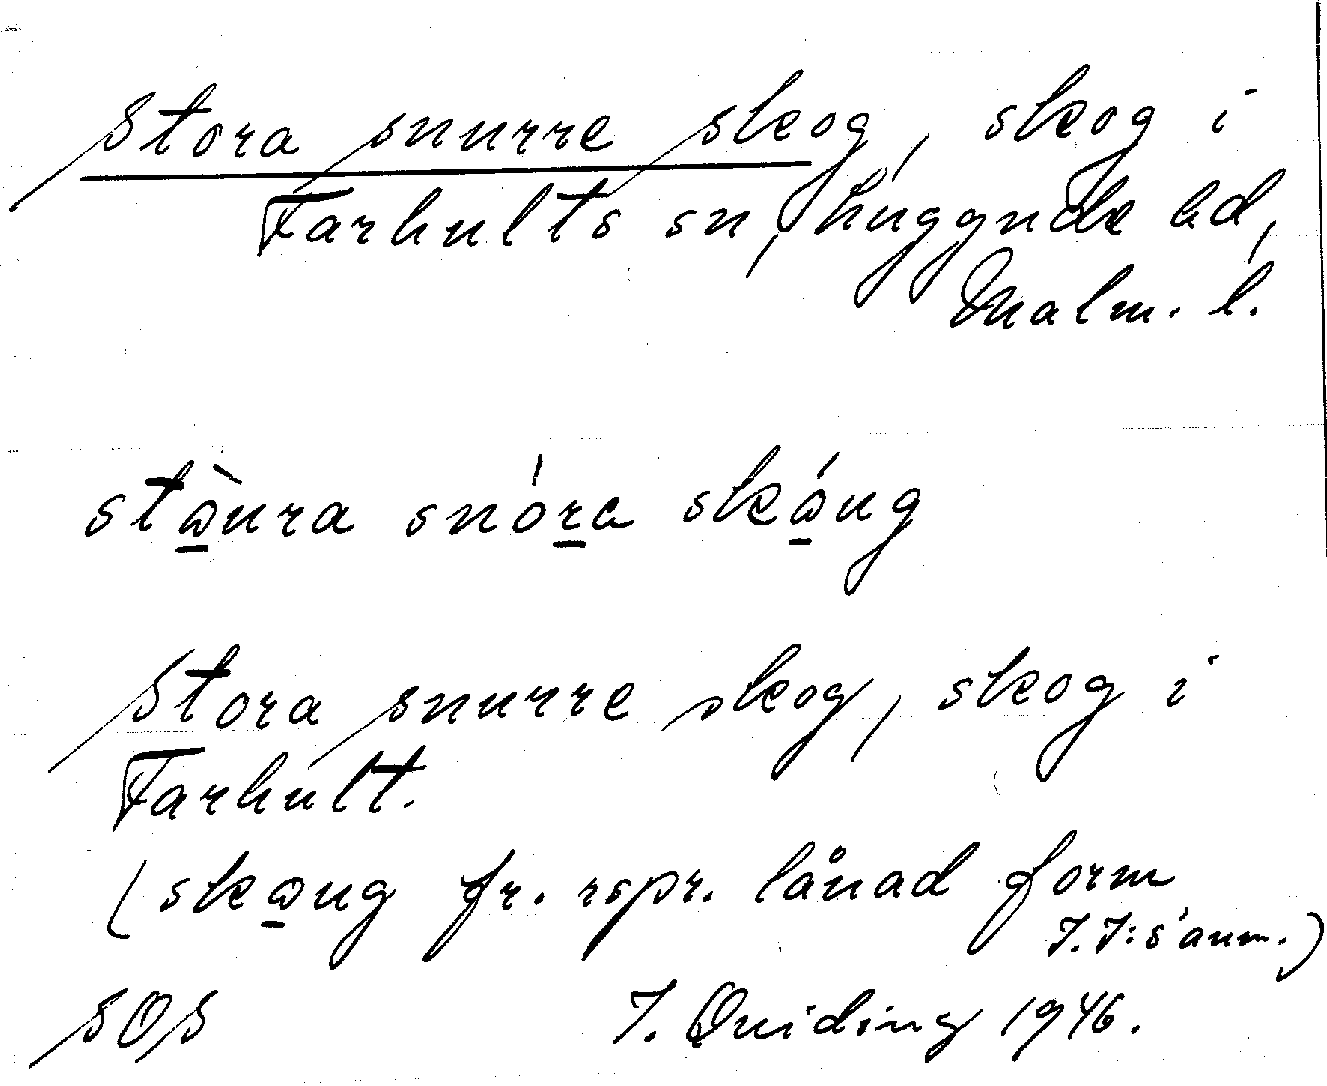 Stora snurre skog, skog i
Farhults sn, Luggude hd,
Malm. l.
stɷ̀ura snóra skɷ́ug
Stora snurre skog, skog i
Farhult.
(skɷug fr. rspr. lånad form
I. I:s anm.)
SOS
I. Quiding 1946.